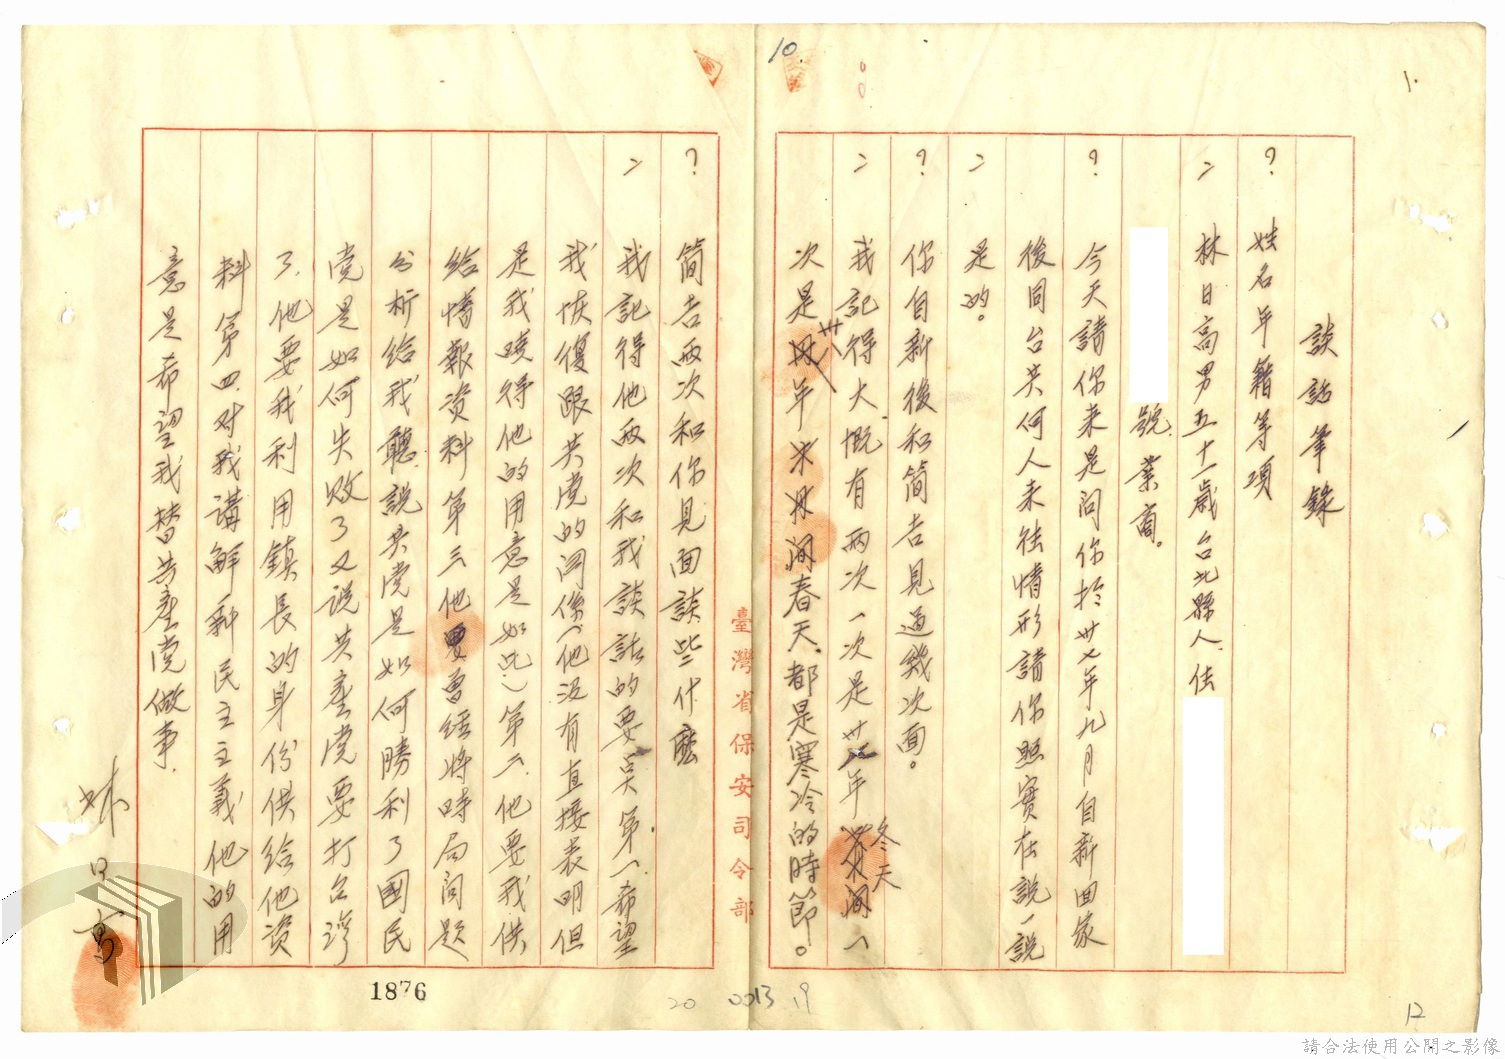 10
1.
談話筆錄
? 姓名年籍等項
= 林日高男五十一歲台北縣人住
號.業商。
? 今天請你来是问你於卅七年九月自新回家
後同台共何人来往情形請你照實在說一說
= 是的。
? 你自新後和简吉見過幾次面。
= 我記得大概有两次一次是卅 年冬天一
次是卅八年 春天.都是寒冷的時節。
? 简吉两次和你見面談些什麽
= 我記得他两次和我談話的要点第一.希望
我恢復跟共党的関係(他沒有直接表明但
是我曉得他的用意是如此)第二.他要我供
給情報资料第三他 曾經将時局问题
分析给我聽.說共党是如何勝利了國民
党是如何失败了又说共產党要打台湾
了.他要我利用鎮長的身份供给他资
料第四.对我講解新民主主義他的用
意是希望我替共產党做事.
林日高
臺灣省保安司令部
1876
20 0013 19
12
請合法使用公開之影像